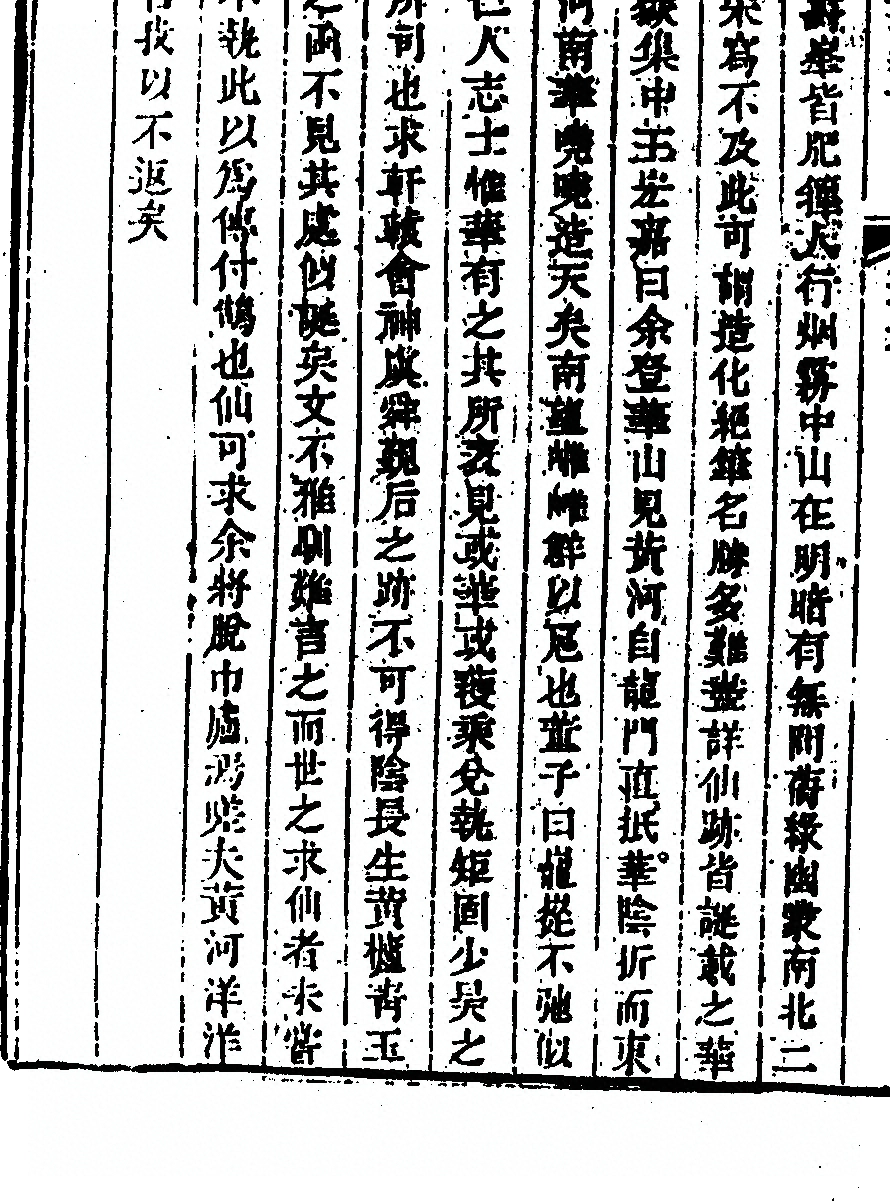 峯皆肥鍾人行烟霧中山在明暗有無間荷綠幽蒙南北二
寫不及此可謂造化絕筆名勝多難盡詳仙跡皆誕載之華
嶽集中王宏嘉曰余登華山見黃河自龍門直抵華陰折而東
河南華嶢嶢造天矣南望雎雎群以冠也董子曰龍從不弛似
邑人志士惟華有之其所表見或華或穫乘兌執矩固少昊之
所司也求軒轅會神與舜覲后之跡不可得陰長生黃櫨青玉
之函不見其處似誕矣文不雅馴難言之而世之求仙者未嘗
不執此以為傳付鵠也仙可求余將脫巾馮夫黃河洋洋
我以不返矣